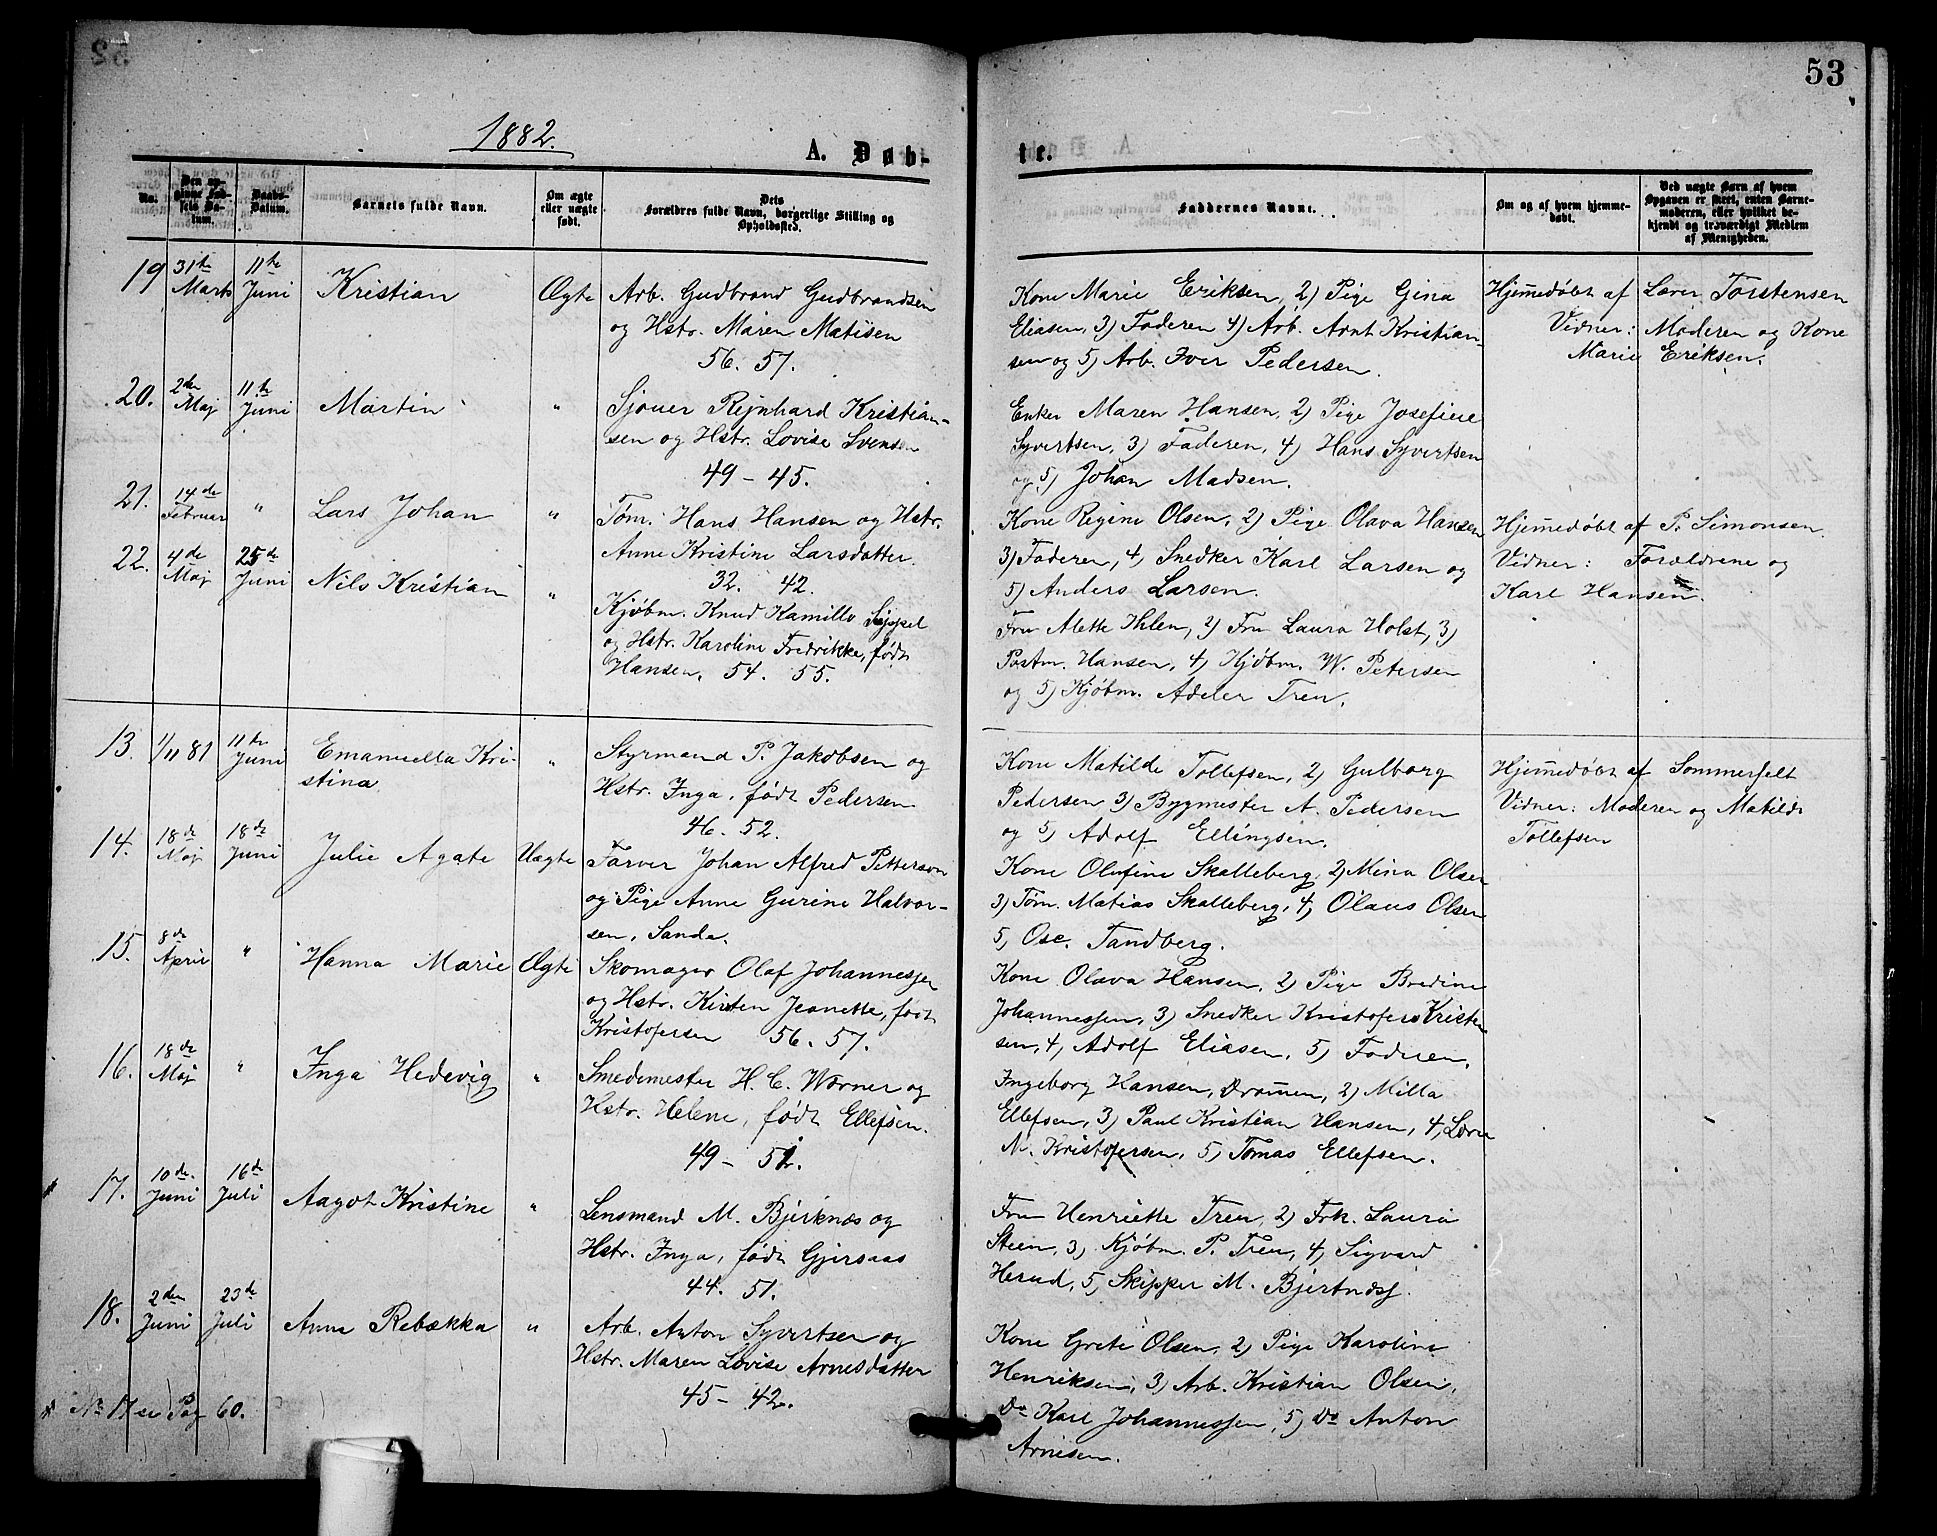 53
1882.
A. Døb-
te.
No.
Den op-
givne Fød-
sels Da-
tum.
Daabs-
Datum.
Barnets fulde Navn.
Om ægte
eller uægte
født.
Dets
Forældres fulde Navn, borgerlige Stilling og
Opholdssted.
Faddernes Navne.
Om og af hvem hjemme-
døbt.
Ved uægte Børn af hvem
Opgaven er skeet, enten Barne-
moderen, eller hvilket be-
kjendt og troværdigt Medlem
af Menigheden.
19 31te Marts 11te Juni Kristian Ægte
Arb. Gudbrand Gudbrandsen
og Hstr. Maren Matisen
56. 57.
Kone Marie Eriksen, 2) Pige Gina
Eliasen, 3) Faderen 4) Arb. Arnt Kristian-
sen og 5) Arb. Iver Pedersen.
Hjemedøbt af Lærer Torstensen
Vidner: Moderen og Kone
Marie Eriksen.
20. 2den Maj 11te Juni Martin "
Sjøuer Rejnhard Kristian-
sen og Hstr. Lovise Svensen
49 - 45.
Enker Maren Hansen, 2) Pige Josefine
Syvertsen, 3) Faderen, 4) Hans Syvertsen
og 5) Johan Madsen.
21. 14de Februar " Lars Johan "
Tøm. Hans Hansen og Hstr.
Anne Kristine Larsdatter.
32. 42.
Kone Regine Olsen, 2) Pige Olava Hansen
3) Faderen, 4, Snedker Karl Larsen og
5) Anders Larsen.
Hjemedøbt af P. Simonsen.
Vidner: Forældrene og
Karl Hansen.
22. 4de Maj 25de Juni Nils Kristian "
Kjøbm. Knud Kamillo
og Hstr. Karoline Fredrikke, født
Hansen, 54. 55.
Fru Alette Ihlen, 2) Fru Laura Holst, 3)
Postm. Hansen, 4, Kjøbm. W. Petersen
og 5) Kjøbm. Adeler Treu.
13. 1/11 81 11te Juni Emanuella Kri-
stina "
Styrmand P. Jakobsen og
Hstr. Inga, født Pedersen
46. 52.
Kone Matilde Tollefsen, 2) Gulborg
Pedersen, 3) Bygmester A. Pedersen
og 5) Adolf Ellingsen.
Hjemedøbt af Sommerfelt
Vidner: Moderen og Matilde
Tollefsen
14. 18de Maj 18de Juni Julie Agate Uægte
Farver Johan Alfred Petterson
og Pige Anne Gurine Halvor-
sen, Sande.
Kone Olufine Skalleberg, 2) Mina Olsen
3) Tøm. Matias Skalleberg, 4, Olaus Olsen
5, Osc. Tandberg.
15. 8de April " Hanna Marie Ægte
Skomager Olaf Johannessen
og Hstr. Kirsten Jeanette, født
Kristofersen 56. 57.
Kone Olava Hansen, 2) Pige Bredine
Johannessen, 3) Snedker Kristofer Kristen-
sen, 4, Adolf Eliasen, 5) Faderen.
16. 18de Maj " Inga Hedevig "
Smedemester H. C. Wørner og
Hstr. Helene, født Ellefsen.
49 - 51.
Ingeborg Hansen, Dramen, 2) Milla
Ellefsen, 3) Paul Kristian Hansen, 4, Lærer
N. Kristofersen, 5) Tomas Ellefsen.
17. 10de Juni 16de Juli Aagot Kristine "
Lensmand M. Bjerknæs og
Hstr. Inga, født Gjersaas
44. 51.
Fru Henriette Treu, 2) Frk. Laura
Steen, 3) Kjøbm. P. Treu, 4, Sigvard
Herud, 5, Skipper M. Bjerknæs.
18. 2den Juni 23de Juli Anne Rebækka "
Arb. Anton Syvertsen og
Hstr. Maren Lovise Arnesdatter
45 - 42.
Kone Grete Olsen, 2) Pige Karoline
Henriksen, 3) Arb. Kristian Olsen,
Do Karl Johannessen, 5) Do Anton
Arnesen.
No 17 se Pag 60.